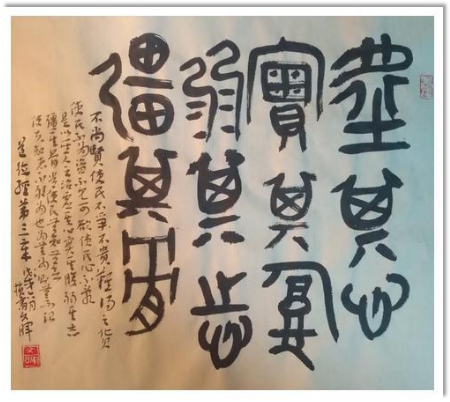 虛其心
實其腹
弱其志
彊其骨
不尚賢使民不爭不貴難得之貨
使民不為盜不見可欲使民心不亂
是以聖人之治虛其心實其腹弱其志
彊其骨常使民無知無欲
使夫知者不敢為也為無為則無不治
道德經第三章